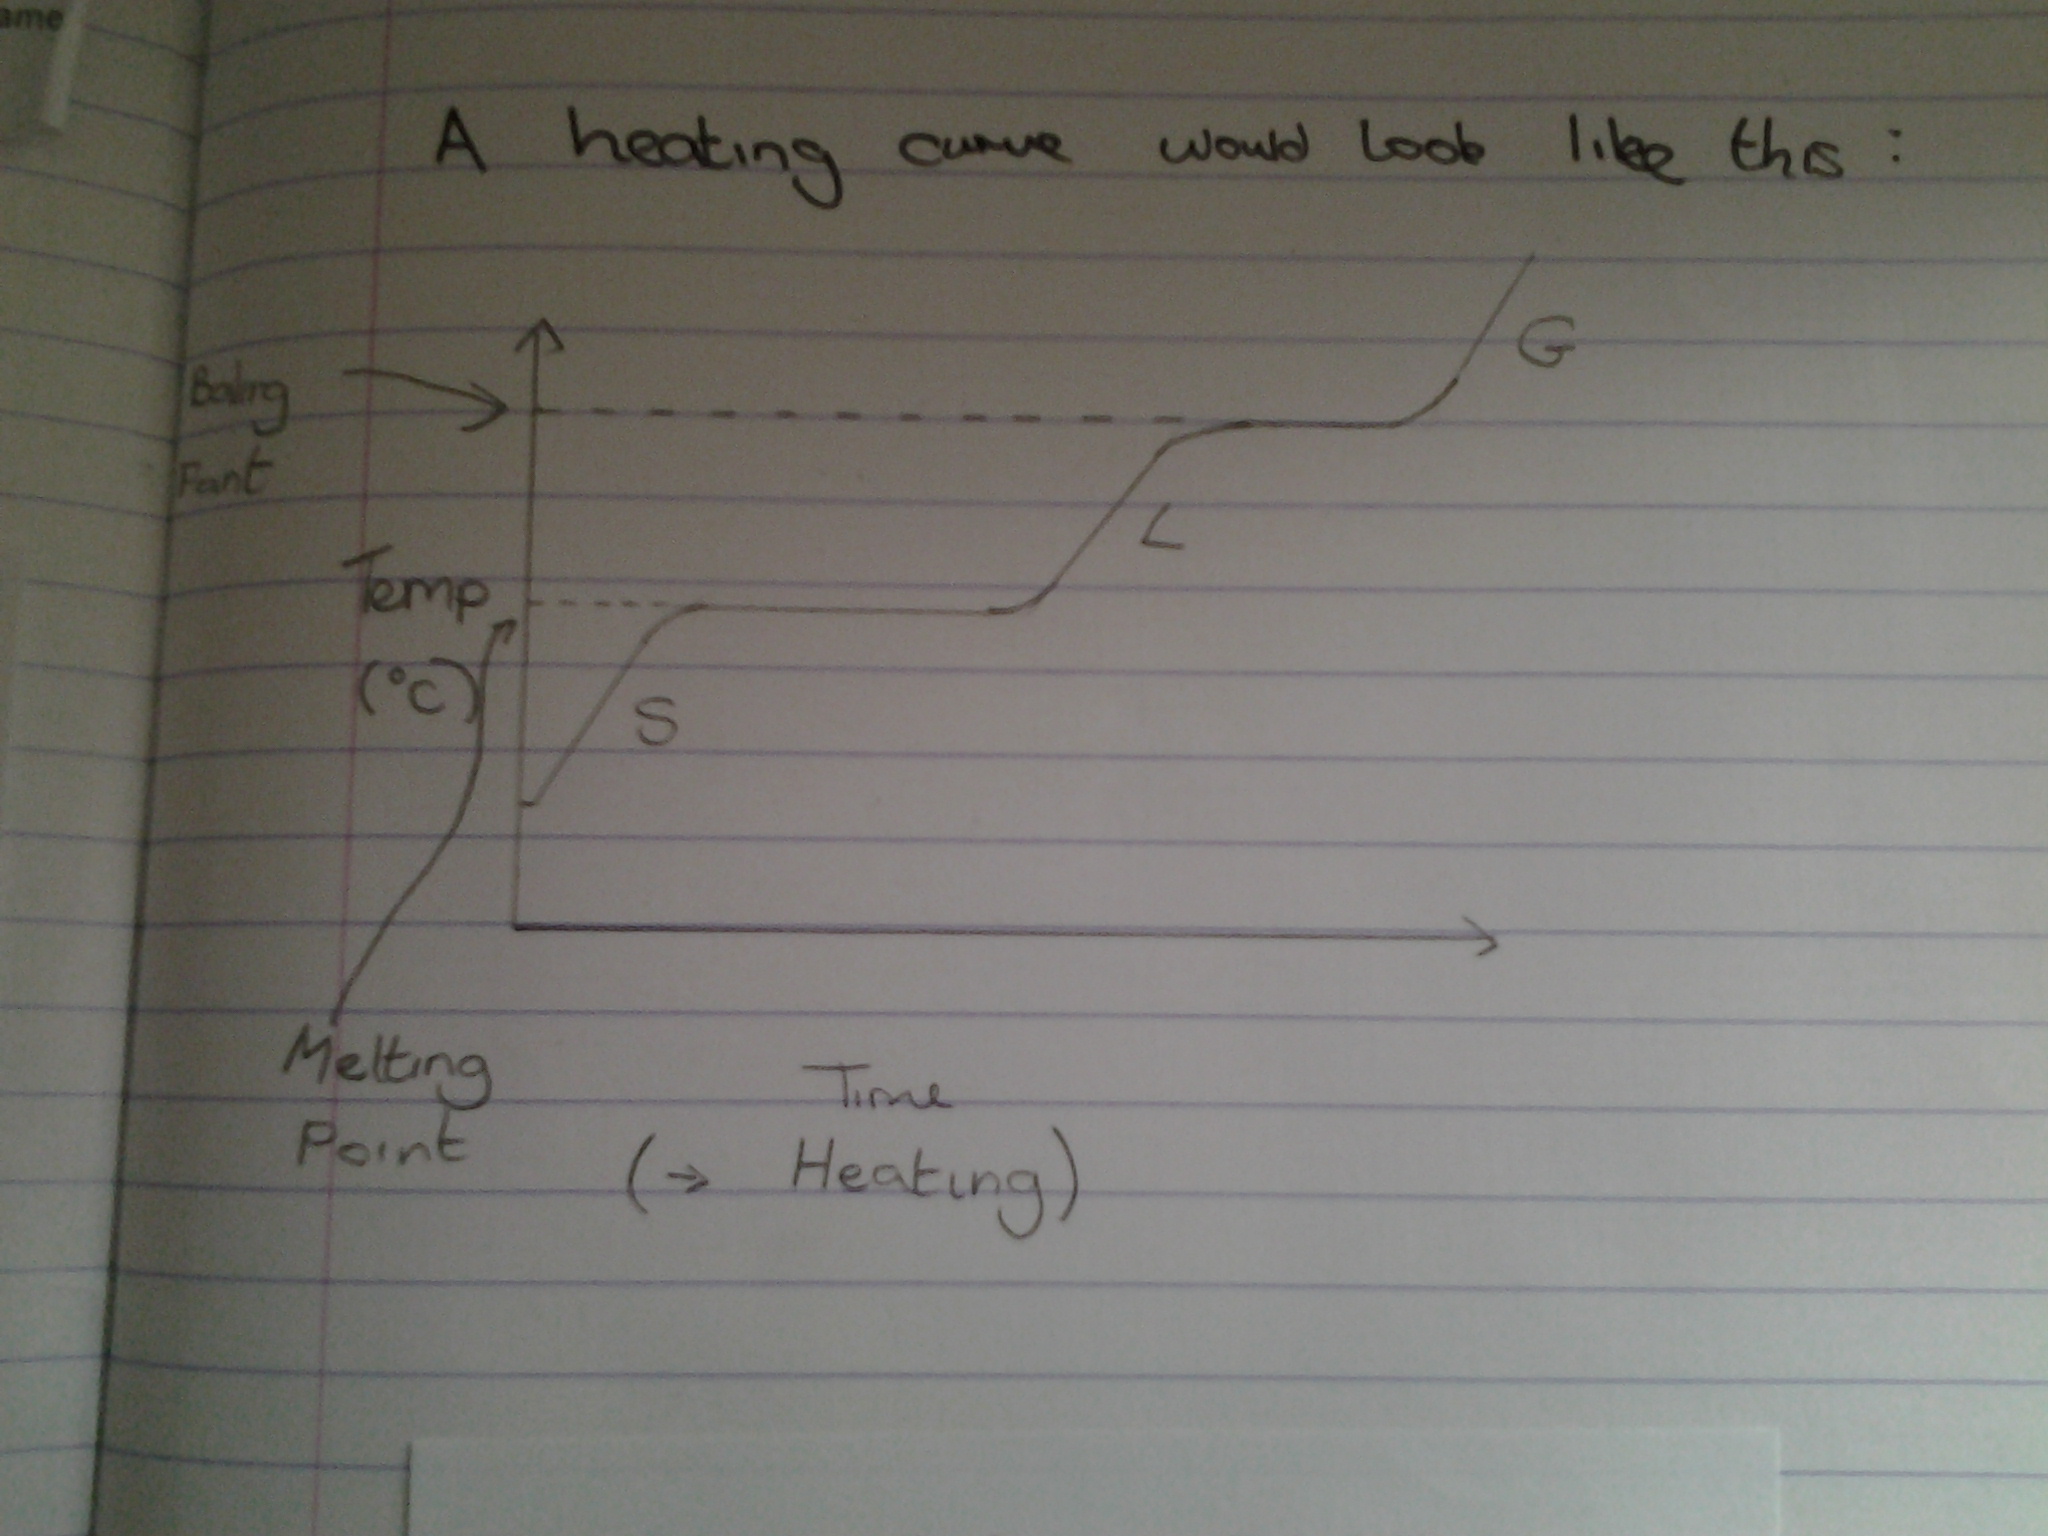 ame
A heating curve would look like this :
G
Boiling
Point
L
Temp
(°C)
S
Melting
Point
Time
(→ Heating)